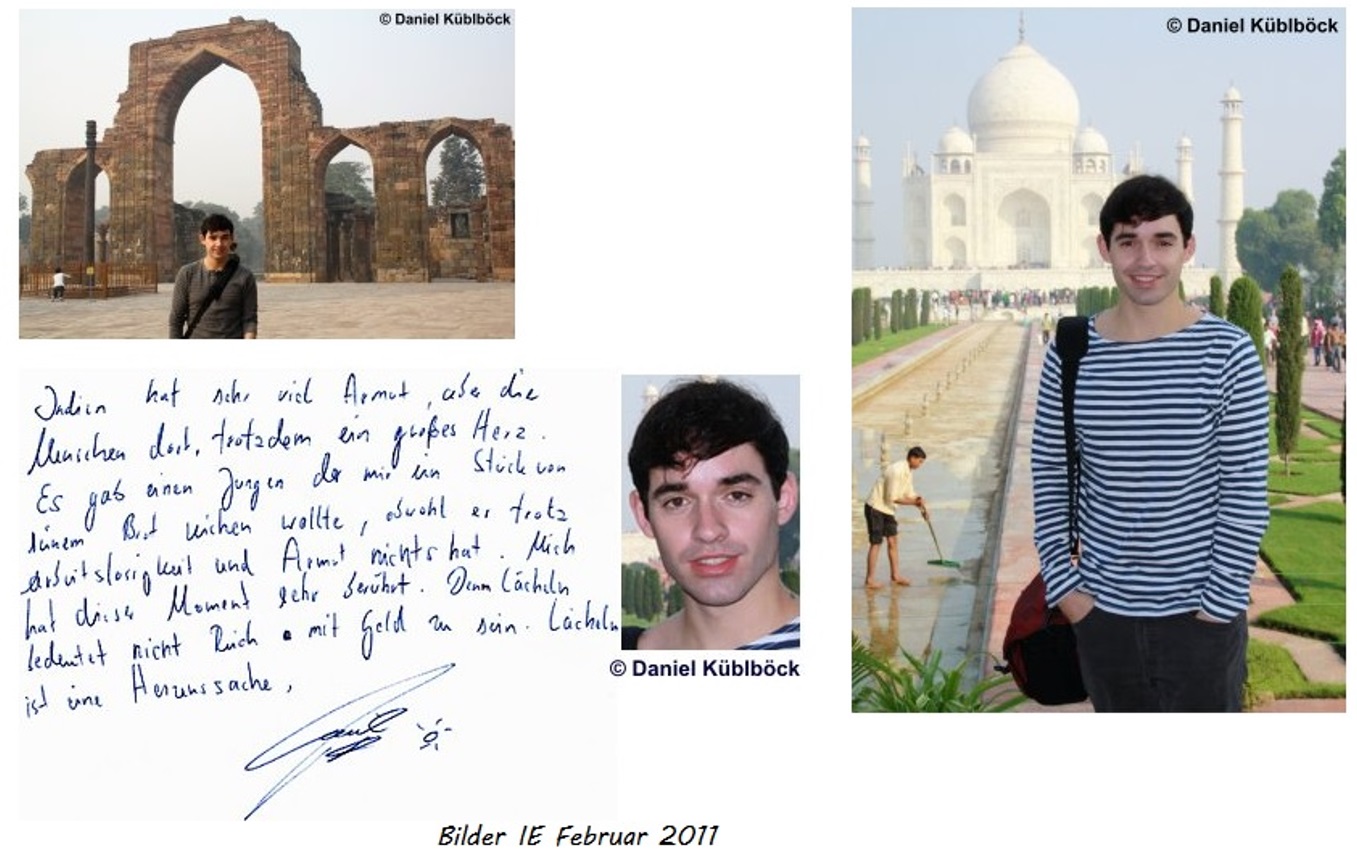 © Daniel Küblböck
© Daniel Küblböck
Indien hat sehr viel Armut, aber die
Menschen dort, trotzdem ein großes Herz.
Es gab einen Jungen der mir ein Stück von
seinem Brot reichen wollte, obwohl er trotz
arbeitslosigkeit und Armut nichts hat. Mich
hat dieser Moment sehr berührt. Denn Lächeln
bedeutet nicht Reich mit Geld zu sein. Lächeln
ist eine Herzenssache,
© Daniel Küblböck
Bilder IE Februar 2011